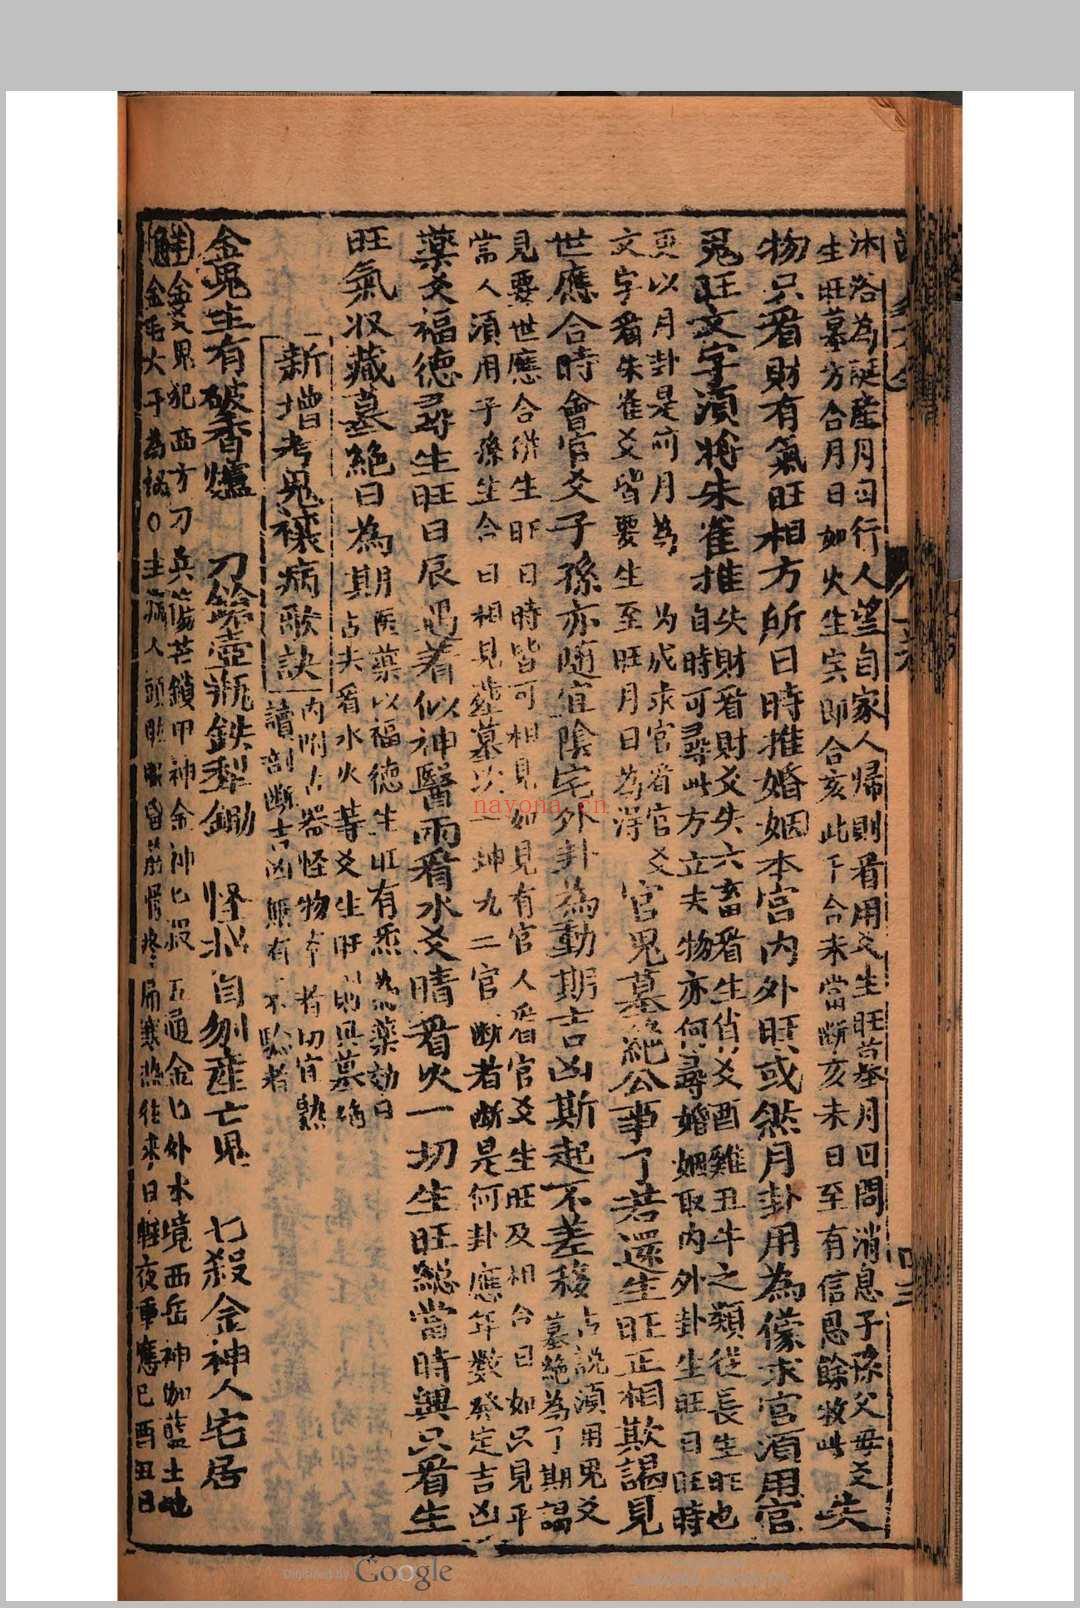 沐浴為誕產月日行人望自家人歸則看用爻生旺墓月日問消息子孫父母爻
生旺墓方合月日如火生寅即合亥此下合未當斷亥未日至有信息餘放此
失
物只看財有氣旺相方所日時推婚姻本宮內外旺或然月卦用為媒求官須用官
鬼旺文字須將朱雀推
失財看財爻失六畜看生肖爻酉雞丑牛之類從長生旺也
自時可尋此方立夫物亦何尋婚姻取內外卦生旺日旺時
更以月卦是何月為 為成求官看官爻
文字看朱雀爻皆要生至旺月日為浮
官鬼墓絕公事了若還生旺正相欺謁見
世應合時會官爻子孫亦隨宜陰宅外卦為動期吉凶斯起不差移
占說須用鬼爻
墓絕為了期謁
見要世應合併生旺日時皆可相見如見有官人看官爻生旺及相合日如只見平
常人須用子孫生合日相見 墓 坤九二官斷者斷是何卦應年數發定吉凶
藥爻福德尋生旺日辰遇着似神醫雨看水爻晴看火一切生旺總當時興只看生
旺氣收藏墓絕日為期
醫藥以福德生旺有炁為藥効日
占失看水火等爻生旺則興墓絕
新增考鬼禳病歌訣
內附占器怪物本者切宜熟
讀剖斷吉凶無有不驗者
金鬼生有破香爐 刀鎗壺瓶鉄犁鋤 怪 自刎產亡鬼 七殺金神人宅居
主金爻鬼犯西方刀兵傷 鎖甲神金神七殺五通金七外水境西岳神伽藍土地
金 火于為禍○主病人頭 眼昏筋骨疼 寒熱往來日輕夜重應巳酉丑日
nayona.cn
Digitized by Google